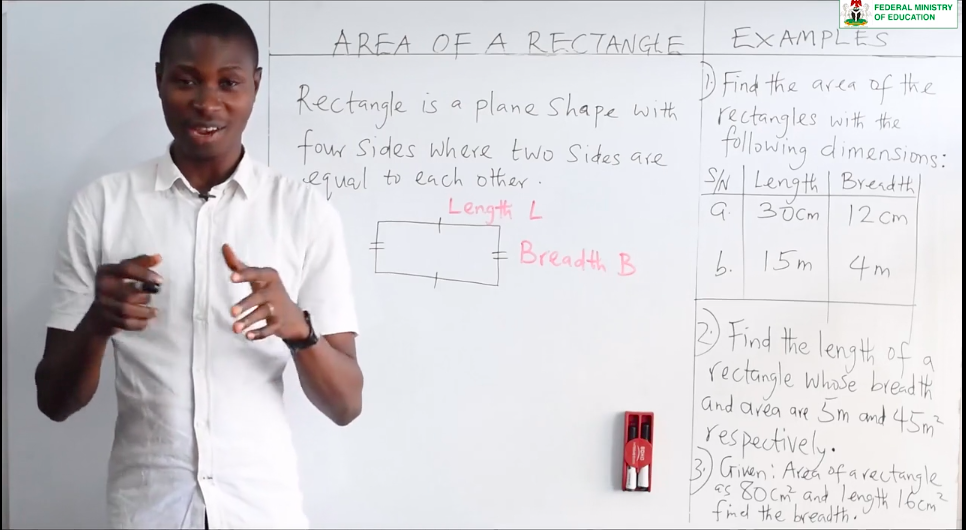 FEDERAL MINISTRY
OF EDUCATION
AREA OF A RECTANGLE
Rectangle is a plane shape with
four sides where two sides are
equal to each other.
Length L
Breadth B
EXAMPLES
1) Find the area of the
rectangles with the
following dimensions:
S/N Length Breadth
a. 30cm 12cm
b. 15m 4m
2) Find the length of a
rectangle whose breadth
and area are 5m and 45m²
respectively.
3) Given: Area of a rectangle
as 80cm² and length 16cm²
find the breadth.